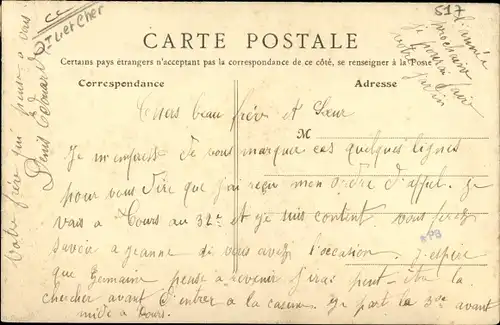 Lr et Cher
517
CARTE POSTALE
Certains pays étrangers n'acceptant pas la correspondance de ce côté, se renseigner à la Poste
Correspondance
Adresse
M
Chers beau frère et Sœur
Je m'empresse de vous marquer ces quelques lignes
pour vous dire que j'ai reçu mon ordre d'appel. je
vais a Tours au 32e et je suis content. vous ferez
savoir a jeanne si vous avez l'occasion. J'espère
que Germaine pense a revenir j'irai peut-être la
chercher avant d'entrer a la caserne. je part le 3 avant
midi a Tours.
Votre frère qui pense a vous
Denis Edouard
l'année
prochaine
je pourrai faire
votre jardin